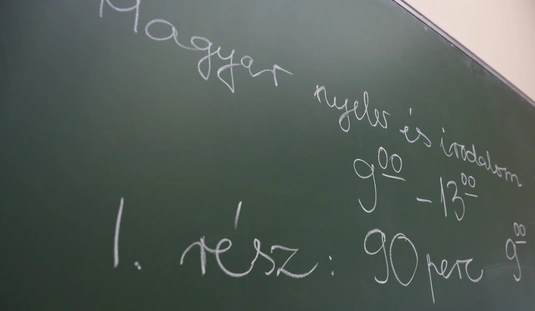 Magyar nyelv és irodalom
9⁰⁰ - 13⁰⁰
I. rész: 90 perc 9⁰⁰